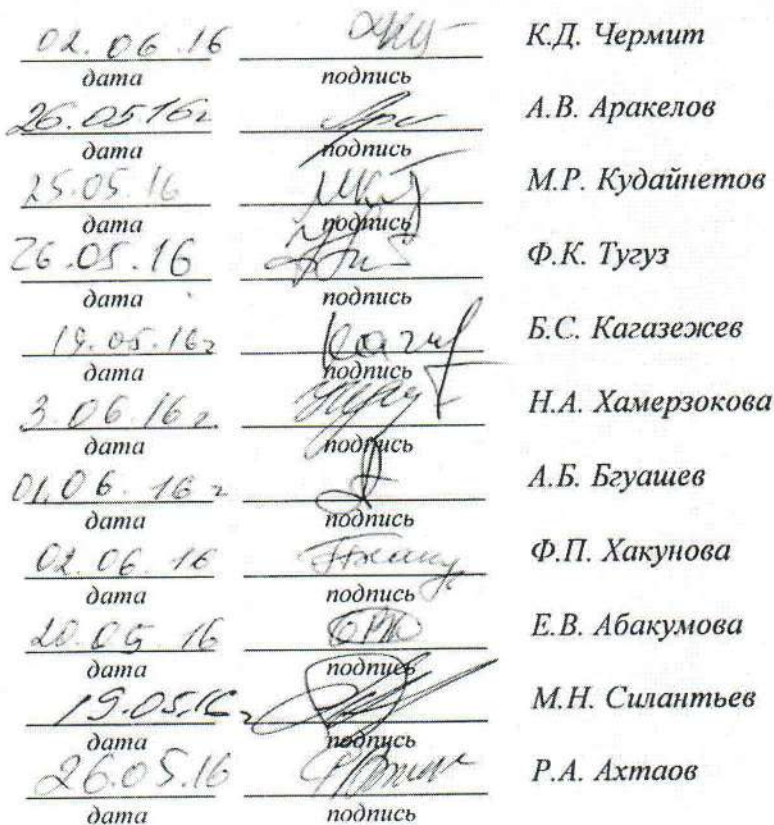 02.06.16 К.Д. Чермит
дата подпись
26.05.16г А.В. Аракелов
дата подпись
25.05.16 М.Р. Кудайнетов
дата подпись
26.05.16 Ф.К. Тугуз
дата подпись
19.05.16г Б.С. Кагазежев
дата подпись
3.06.16г. Н.А. Хамерзокова
дата подпись
01.06.16г А.Б. Бгуашев
дата подпись
02.06.16 Ф.П. Хакунова
дата подпись
20.05.16 Е.В. Абакумова
дата подпись
19.05.16г М.Н. Силантьев
дата подпись
26.05.16 Р.А. Ахтаов
дата подпись